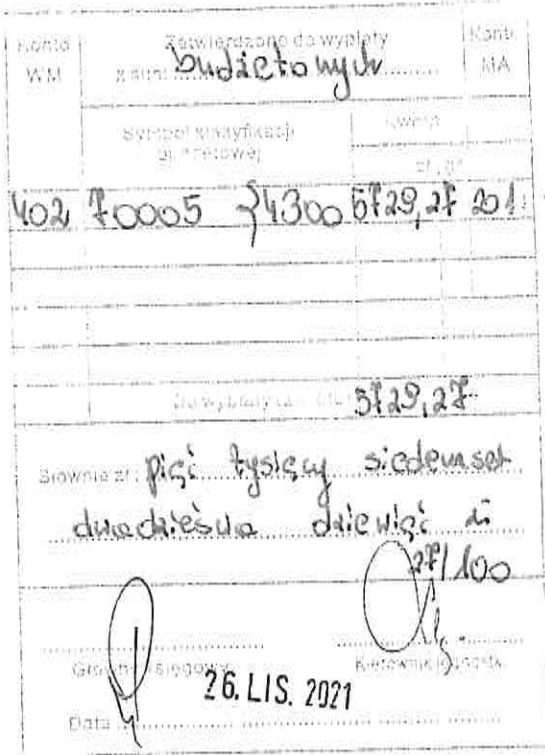 Konto Zatwierdzono do wypłaty Konto
WM z sum budżetowych MA
Symbol klasyfikacji Kwota
budżetowej zł, gr
402 70005 }4300 5729,27 201
Do wypłaty 5729,27
Słownie zł: pięć tysięcy siedemset
dwadzieścia dziewięć i
27/100
Główny księgowy Kierownik jednostki
26. LIS. 2021
Data